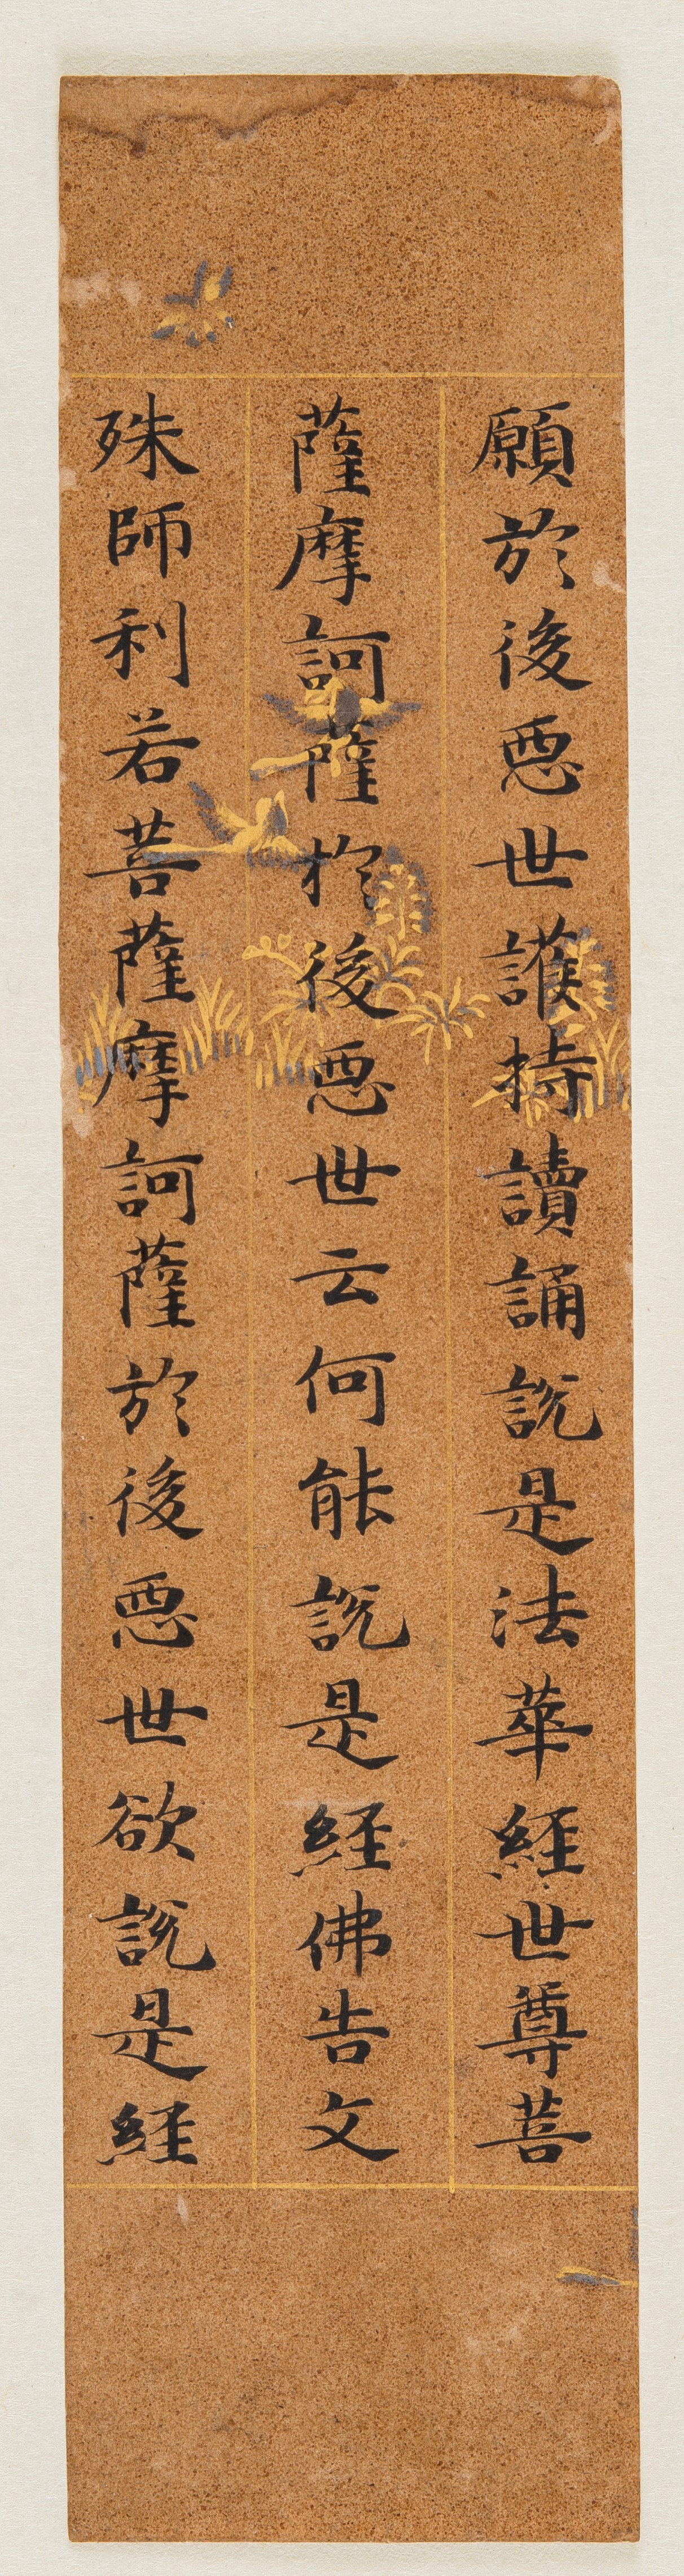 願於後惡世護持讀誦說是法華経世尊菩
薩摩訶薩於後惡世云何能說是経佛告文
殊師利若菩薩摩訶薩於後惡世欲說是経